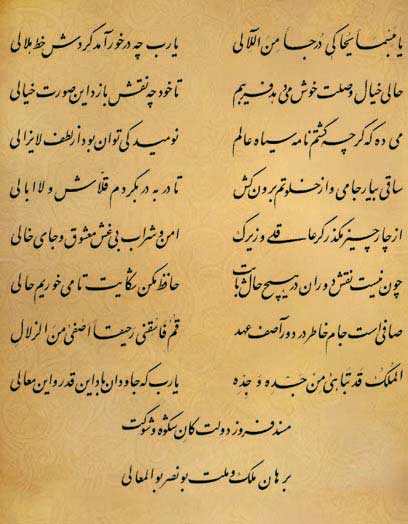 یا مبسماً یحاکی درجاً من اللآلی یا رب چه درخور آمد گردش خط هلالی
حالی خیال وصلت خوش می دهد فریبم تا خود چه نقش بازد این صورت خیالی
می ده که گرچه گشتم نامه سیاه عالم نومید کی توان بود از لطف لایزالی
ساقی بیار جامی و از خلوتم برون کش تا در به در بگردم قلاش و لاابالی
از چار چیز مگذر گر عاقلی و زیرک امن و شراب بی غش معشوق و جای خالی
چون نیست نقش دوران در هیچ حال ثابت حافظ مکن شکایت تا می خوریم حالی
صافی است جام خاطر در دور آصف عهد قم فاسقنی رحیقاً اصفی من الزلال
الملک قد تباهی من جده و جده یا رب که جاودان باد این قدر و این معالی
مسند فروز دولت کان شکوه و شوکت
برهان ملک و ملت بونصر بوالمعالی